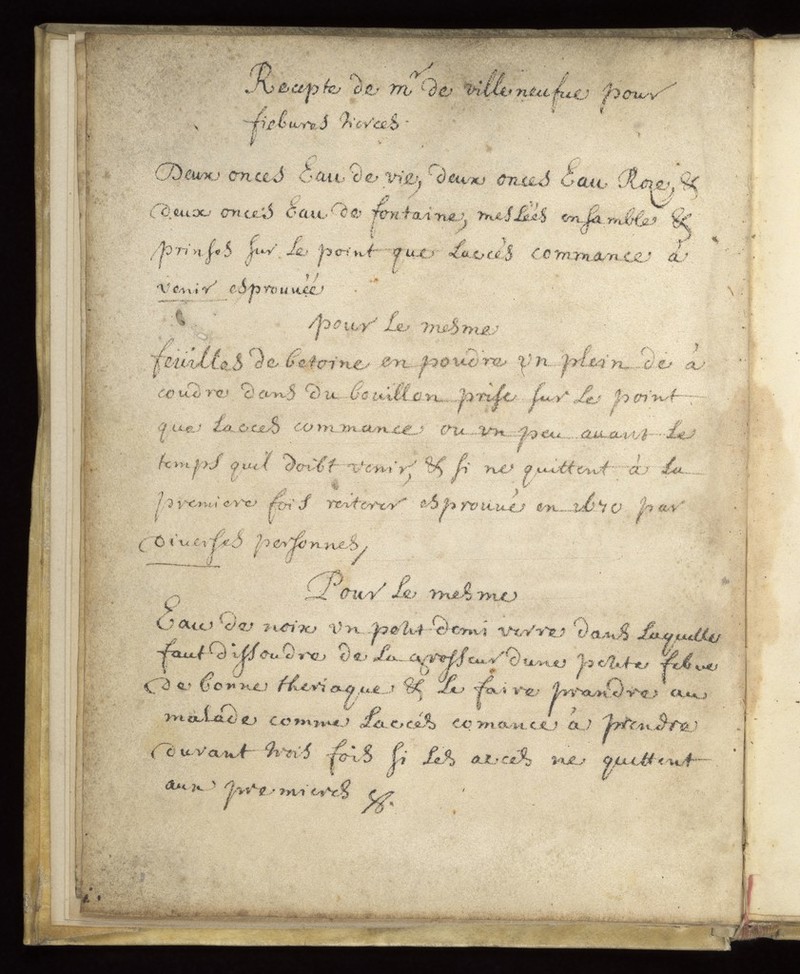 Recepte de mr de villeneufue pour
fiebures tierces.
Deux onces Eau de vie, deux onces Eau Roze, &
deux onces Eau de fontaine, meslées ensamble &
prinses sur le point que Laccés commance à
venir esprouuéé
pour Le mesme
feüilles de betoine en poudre vn plein de à
coudre dans du bouillon prise sur Le point
que Lacces commance ou vn peu auant Le
temps quil doibt venir, & si ne quittent à La
premiere fois reiterer esprouué en 1670 par
diuerses personnes,
Pour Le mesme
Eau de noix vn petit demi verre dans Laquelle
faut dissoudre de La grosseur dune petite febue
de bonne theriaque & Le faire prandre au
malade comme Laccés comance à prendre
durant trois fois si Les acces ne quittent
aux premieres &.